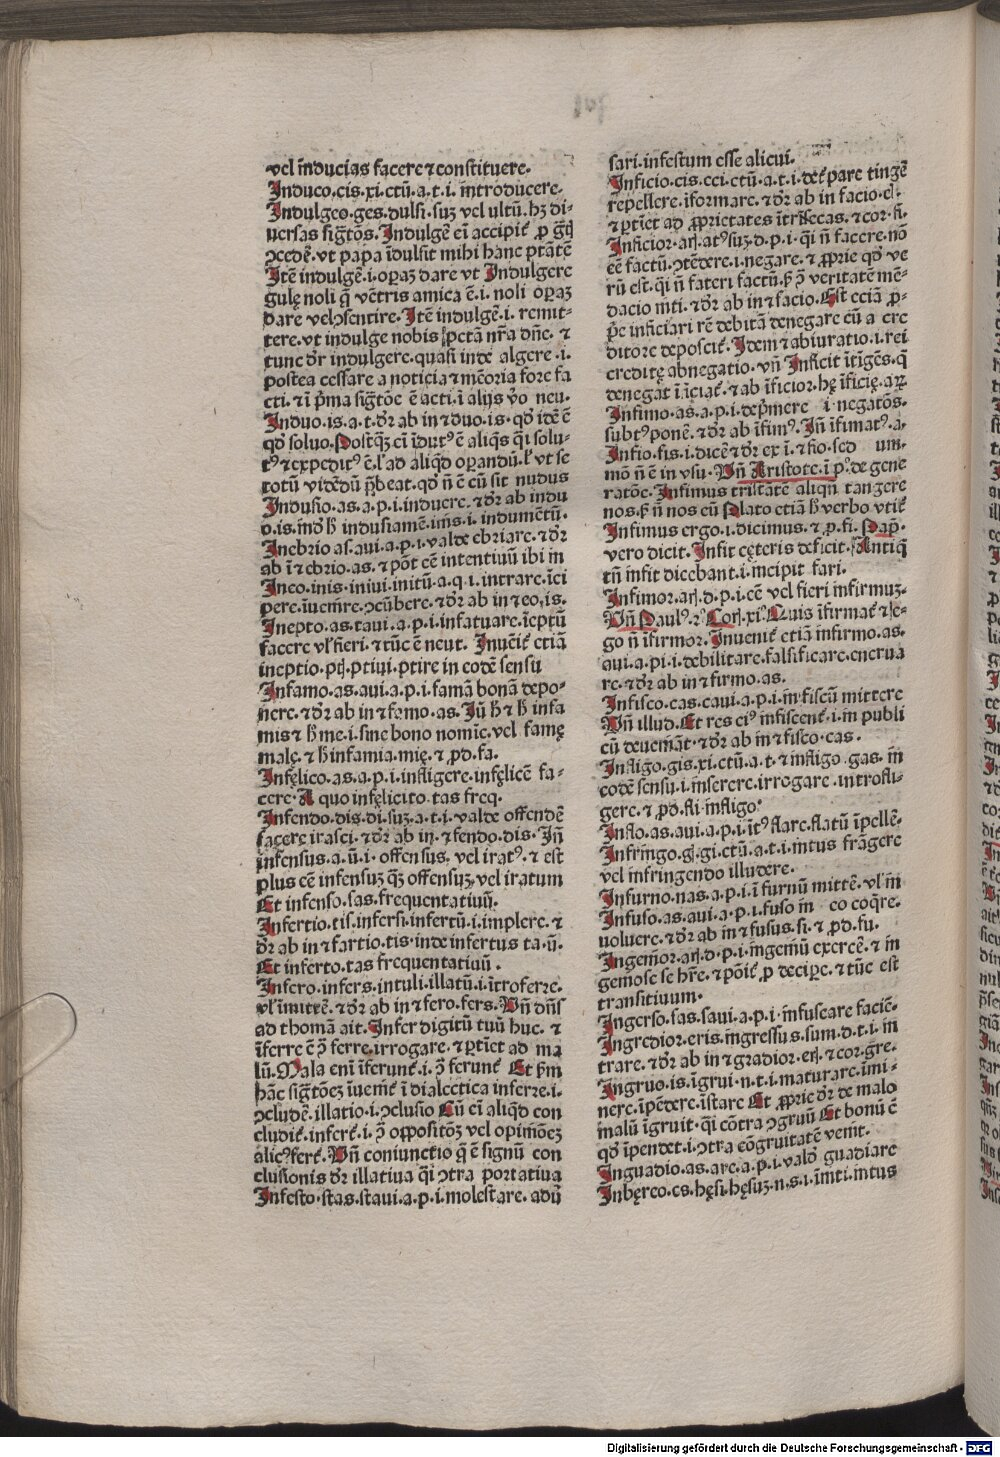 vel īnducias facere ⁊ constituere.
Induco.cis.xi.ctū.a.t.i. introducere.
Indulgeo.ges.dulsi.suꝫ vel ultū.hꝫ di-
uersas sigtōs. Indulgē eī accipit̄
ꝯcedē. vt papa īdulsit mihi hanc ptātē
Itē indulgē.i.opaꝫ dare vt Indulgere
gulę noli q̄ vētris amica ē.i. noli opaꝫ
dare vel ꝯsentire. Itē indulgē.i. remit-
tere. vt indulge nobis pctā nr̄a dn̄e. ⁊
tunc dr̄ indulgere. quasi inde algere .i.
postea cessare a noticia ⁊ mēoria fore fa
cti. ⁊ ī p̄ma sigtōe ē acti. ī alijs ꝟo neu.
Induo.is.a.t.dr̄ ab in ⁊ duo.is. qd̓ idē ē
qd̓ soluo. Postq̄ꝫ eī īdutꝰ ē aliqs q̄i solu-
tꝰ ⁊ expeditꝰ ē. ł ad aliqd̓ opandū. ł vt se
totū vidēdū p̄beat. qd̓ n̄ ē cū sit nudus
Indusio.as.a.p.i. induere. ⁊ dr̄ ab indu
o.is. hͦ indusiamē.inis.i. indumētū.
Inebrio as.aui.a.p.i. valde ebriare. ⁊ dr̄
ab ī ⁊ ebrio.as. ⁊ pōt eē intentiuū ibi in
Ineo.inis.iniui.initū.a.q.i. intrare. īci
pere. īuenire. ꝯcūbere. ⁊ dr̄ ab in ⁊ eo,is.
Inepto.as.taui.a.p.i. infatuare. īeptū
facere vł fieri. ⁊ tūc ē neut. Inuēit̄ etiā
ineptio.ptiui.ptire in eodē sensu
Infamo.as.aui.a.p.i. famā bonā depo-
nere. ⁊ dr̄ ab in ⁊ famo.as. Iñ hͨ ⁊ hͨ infa
mis ⁊ hͦ me.i. sine bono nomīe. vel famę
malę. ⁊ hͨ infamia.mię. ⁊ ꝓd. fa.
Infęlico.as.a.p.i. infligere. infęlicē fa-
cere. A quo infęlicito.tas freq.
Infendo.dis.di.suꝫ.a.t.i. valde offendē
facere irasci. ⁊ dr̄ ab in. ⁊ fendo.dis. Iñ
infensus.a.ū.i. offensus. vel iratꝰ. ⁊ est
plus eē infensuꝫ q̄ꝫ offensuꝫ. vel iratum
Et infenso.sas.frequentatiuū.
Infertio.tis.infersi.infertū.i. implere. ⁊
dr̄ ab in ⁊ fartio.tis. inde infertus ta.ū.
Et inferto.tas frequentatiuū.
Infero.infers.intuli.illatū.i. ītroferre.
vł īmittē. ⁊ dr̄ ab in ⁊ fero.fers. Vñ dn̄s
ad thomā ait. Infer digitū tuū huc. ⁊
īferre ē ꝯ̄ ferre. irrogare. ⁊ ꝑtīet ad ma
lū. Mala eni īferunt̄.i. ꝯ̄ ferunt̄ Et ẜm
hāc sigtōeꝫ īuenit̄ ī dialectica inferre.i.
ꝯcludē. illatio.i. ꝯclusio Cū eī aliqd̓ con
cludit̄. infert̄.i. ꝯ̄ oppositōꝫ vel opinōeꝫ
alicꝰ fert̄. Vñ coniunctio q̄ ē signū con
clusionis dr̄ illatiua q̄i ꝯtra portatiua
Infesto.stas.staui.a.p.i. molestare. adū
sari. infestum esse alicui.
Inficio.cis.eci.ctū.a.t.i. dēt̄pare tingē
repellere. īformare. ⁊ dr̄ ab in facio.ci.
⁊ ꝑtīet ad ꝓprietates ītrīsecas. ⁊ cor. fi.
Inficior.arͥ.atꝰ suꝫ.d.p.i. q̄i n̄ facere. nō
eē factū. ꝯtēdere.i. negare. ⁊ ꝓprie qd̓ ve
rū est. q̄i n̄ fateri factū. sꝫ ꝯ̄ veritatē mē-
dacio niti. ⁊ dr̄ ab in ⁊ facio. Est eciā ꝓ-
p̄e inficiari rē debitā denegare cū a cre
ditore deposcit̄. Idem ⁊ abiuratio.i. rei
creditę abnegatio. vñ Inficit īt̄igēs. q̄
denegat īiciat̄. ⁊ ab īficior. hę īficię. aꝝ.
Infimo.as.a.p.i. dep̄mere i negatōs.
subtꝰponē. ⁊ dr̄ ab īfimꝰ. Iñ īfimatꝰ.a.
Infio.fis.i. dicē ⁊ dr̄ ex ī. ⁊ fio. sed um-
mō n̄ ē in vsu. Vñ Aristote. ī pͦ. de gene
ratōe. Infimus tristātē aliqn̄ tangere
nos. sꝫ n̄ nos cū Plato etiā hͦ verbo vtit̄
Infimus ergo.i. dicimus. ⁊ ꝓ. fi. Pap̄.
vero dicit. Infit cęteris deficit. Antiq̄
tn̄ infit dicebant.i. incipit fari.
Infimor.arͥ.d.p.i. eē vel fieri infirmuꝫ.
Vñ Paulꝰ. 2ͦ Corͥ.xiͦ. Quis īfirmat̄ ⁊ e-
go n̄ īfirmor. Inuenit̄ etiā infirmo.as.
aui.a.pi.i. debilitare. falsificare. eneruа
re. ⁊ dr̄ ab in ⁊ firmo.as.
Infisco.cas.caui.a.p.i. in fiscū mittere
Vñ illud. Et res eiꝰ infiscent̄.i. in publi
cū deueniāt. ⁊ dr̄ ab in ⁊ fisco.cas.
Infligo.gis.xi.ctū.a.t. ⁊ infligo.gas. in
eodē sensu.i. inserere. irrogare. introfli-
gere. ⁊ ꝓd. fli infligo.
Inflo.as.aui.a.p.i. ītꝰ flare. flatū īpellē.
Infringo.gͥ.gi.ctū.a.t.i. intus frāgere
vel infringendo illudere.
Infurno.nas.a.p.i. ī furnū mittē. vł in
Infuso.as.aui.a.p.i. fuso in eo coq̄re.
uoluere. ⁊ dr̄ ab in ⁊ fusus.si. ⁊ ꝓd. fu.
Ingemor.arͥ.d.p.i. ingemū exercē. ⁊ in
gemose se hr̄e. ⁊ pōit̄ ꝓ decipe. ⁊ tūc est
transitiuum.
Ingerso.sas.saui.a.p.i. infuscare faciē.
Ingredior.eris.ingressus.sum.d.t.i. in
trare. ⁊ dr̄ ab in ⁊ gradior.erͥ. ⁊ cor.gre.
Ingruo.is.īgrui.n.t.i. maturare. īmi-
nere. īpēdere. īstare Et ꝓprie dr̄ de malo
malū īgruit. q̄i cōtra ꝯgruū Et bonū ē
qd̓ īpendet.i. ꝯtra cōgruitatē venit.
Inguadio.as.are.a.p.i. valō guadiare
Inhęreo.es.hęsi.hęsuꝫ.n.s.i. īniti. intus
Digitalisierung gefördert durch die Deutsche Forschungsgemeinschaft - DFG